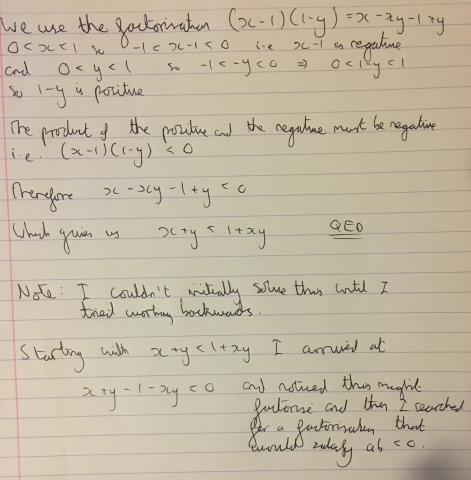 We use the factorisation (x-1)(1-y) = x-xy-1+y
0<x<1 so -1<x-1<0 i.e x-1 is negative
and 0<y<1 so -1<-y<0 ⇒ 0<1-y<1
so 1-y is positive
The product of the positive and the negative must be negative
i.e. (x-1)(1-y) < 0
Therefore x-xy-1+y < 0
Which gives us x+y < 1+xy QED
Note: I couldn't initially solve this until I
tried working backwards.
Starting with x+y<1+xy I arrived at
x+y-1-xy<0 and noticed this might
factorise and then I searched
for a factorisation that
would satisfy ab<0.